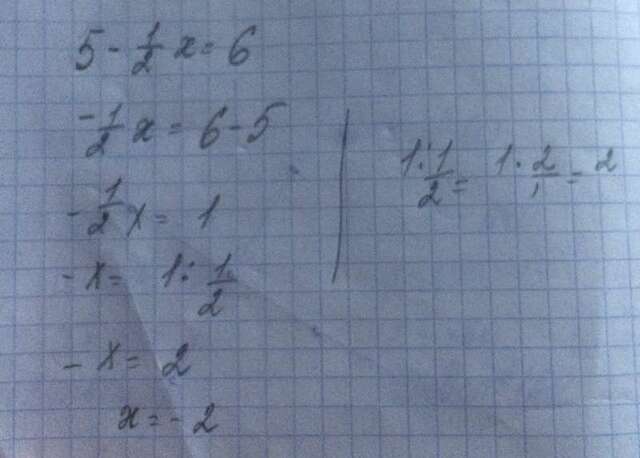 5 - 1/2 x = 6
- 1/2 x = 6 - 5
- 1/2 x = 1
- x = 1 : 1/2
- x = 2
x = - 2
1 : 1/2 = 1 · 2/1 = 2